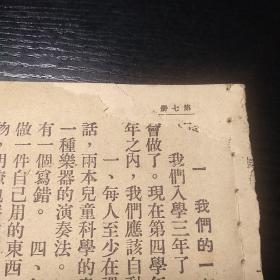 第七册
一 我們的一
我們入學三年了
會做了。現在第四學年
年之內,我們應該自動
一、每人至少在
話,兩本兒童科學的
一種樂器的演奏法。
有一個寫錯。 四、
做一件自己用的東西